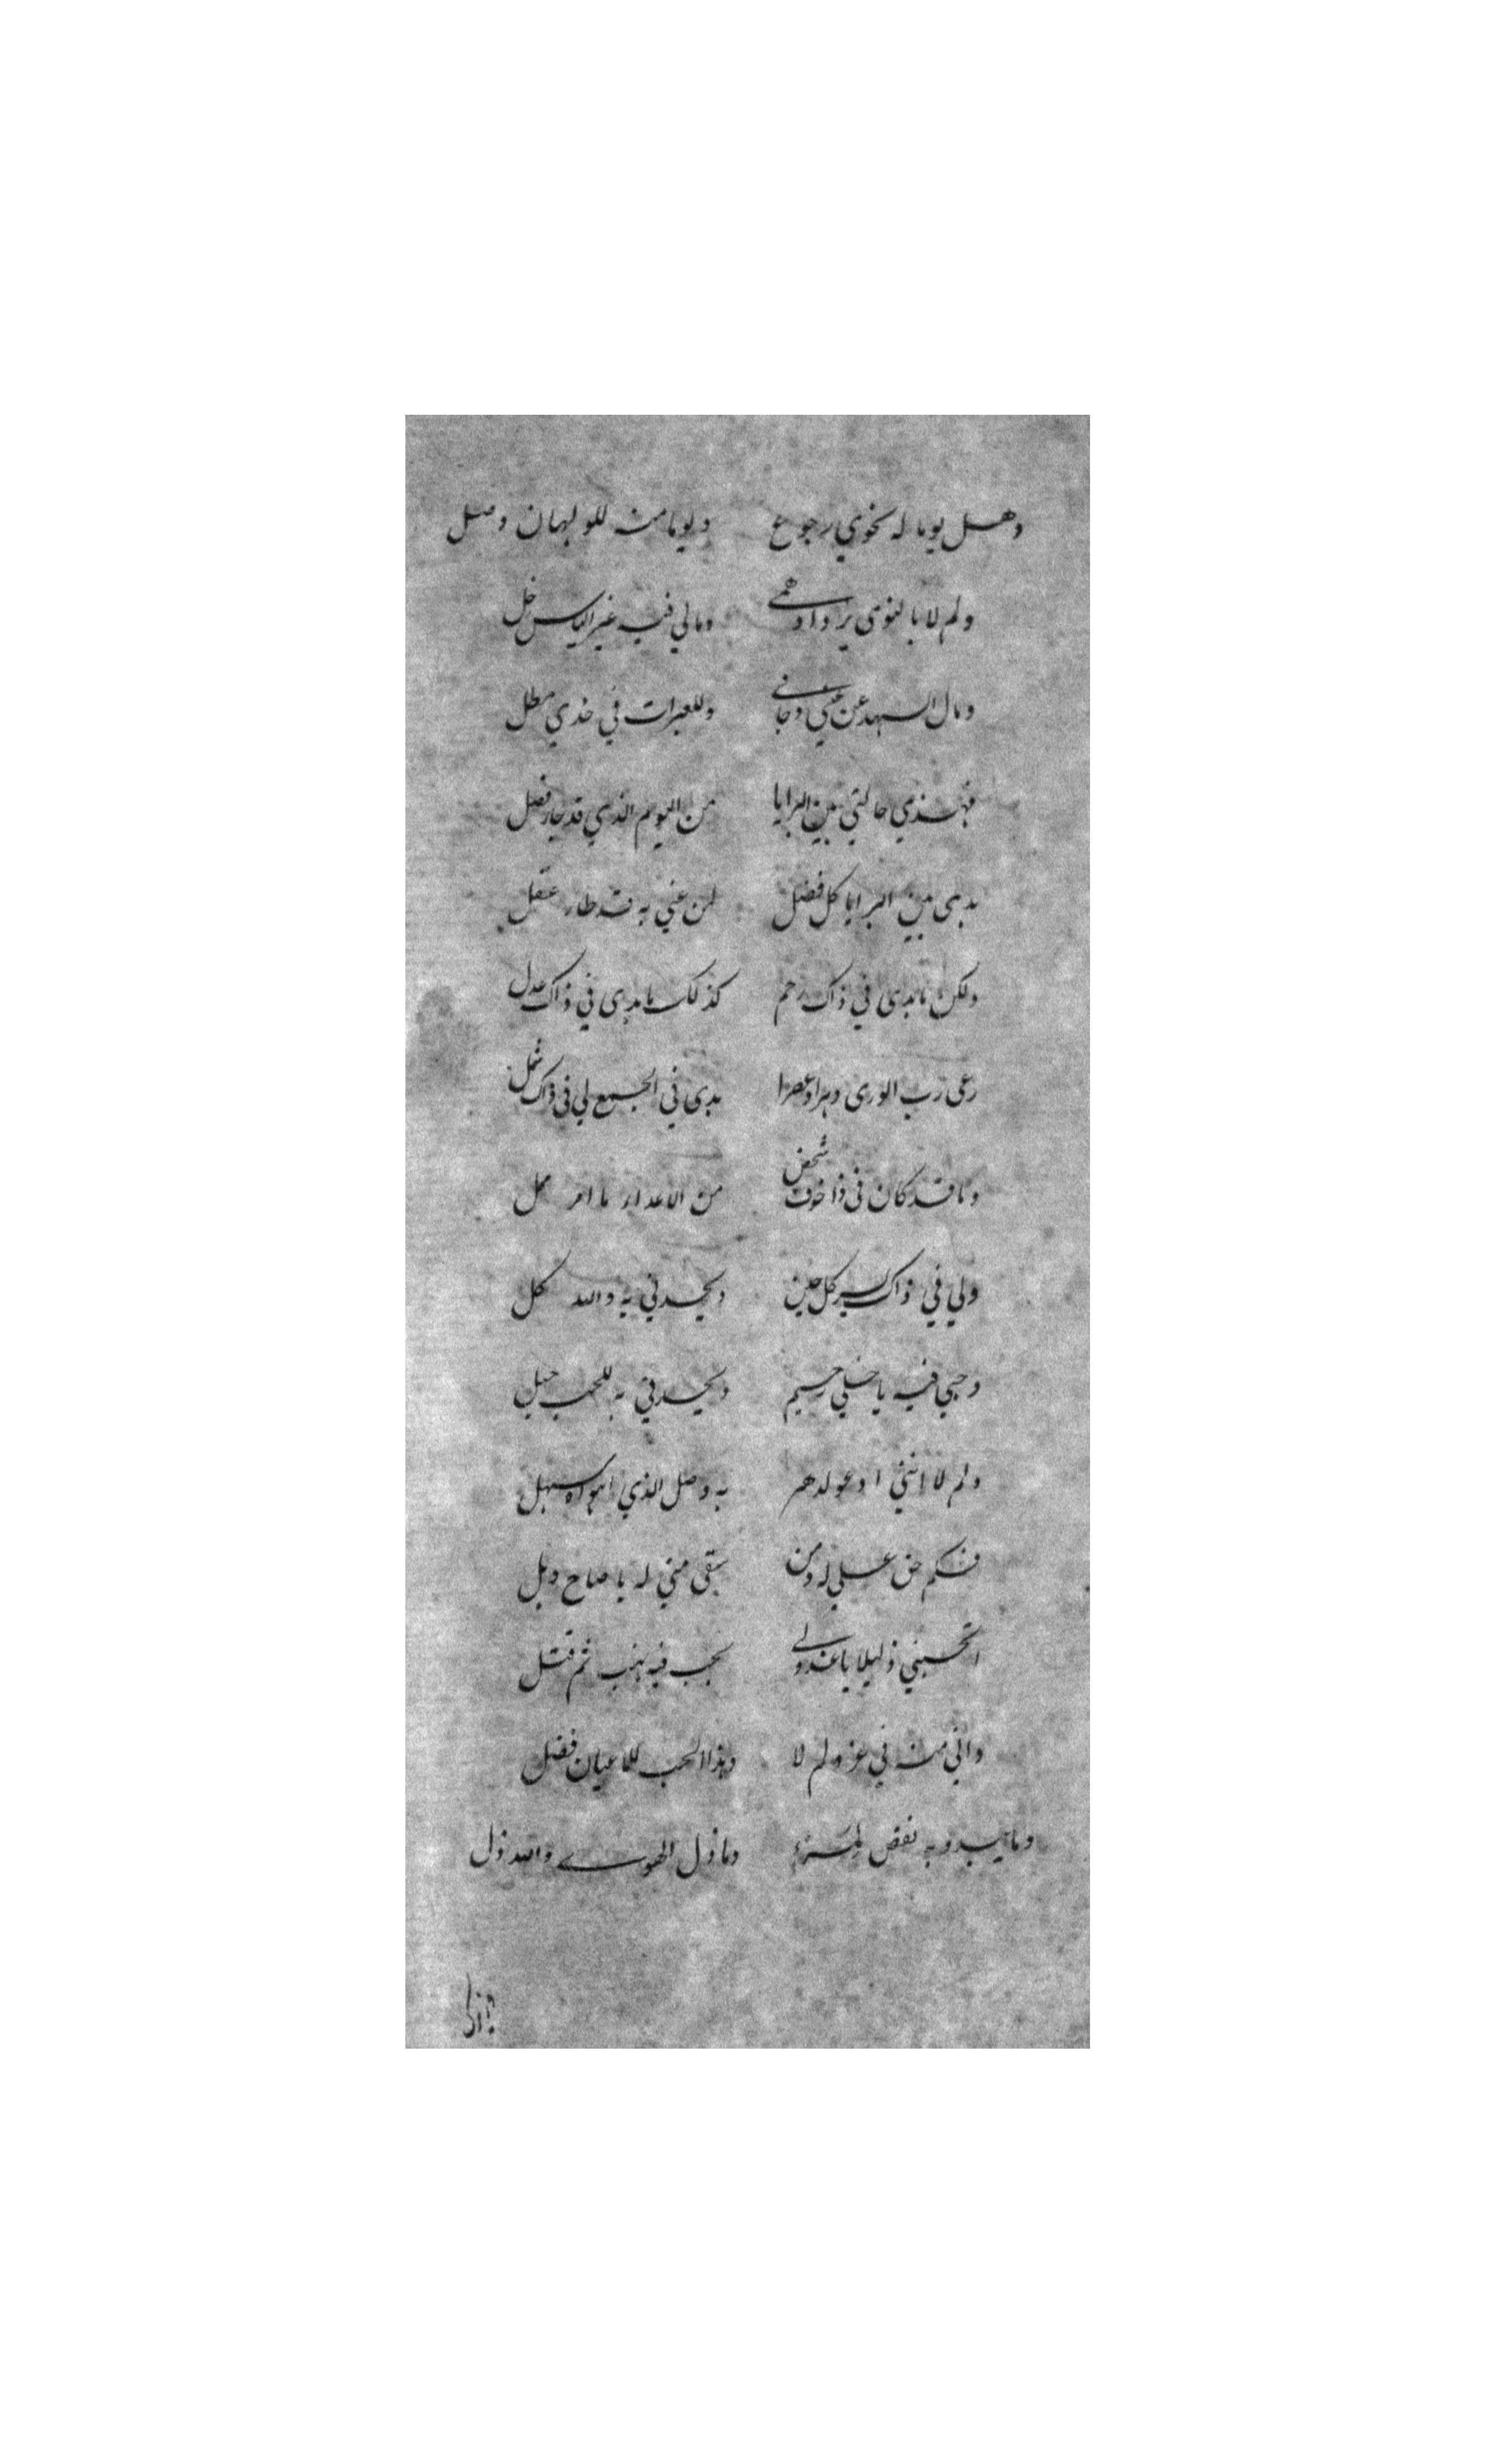 وهل يوما له نحوي رجوع ويوما منه للولهان وصل
ولم لا بالنوى يزداد همي ومالي فيه غير الياس خل
ومال السهد عن عيني وجاني وللعبرات في خدي مطل
فهذي حالتي بين البرايا من اليوم الذي قد جار فصل
بدى بين البرايا كل فضل لمن عني به قد طار عقل
ولكن ما بدى في ذاك رحم كذلك ما بدى في ذاك عدل
رعى رب الورى دهرا وعصرا بدى في الجمع لي في ذاك شمل
وما قد كان في ذا خوف شخص من الاعداء ما امر ممل
ولي في ذاك سير كل حين ويحسدني به والله كل
وحبي فيه يا خلي رحيم ويحسدني به للحب حبل
ولم لا انثني ادعو لدهر به وصل الذي اهواه سهل
فكم حق علي له ومن سقى مني له يا صاح وبل
اتحسبني ذليلا يا عذولي بحب فيه نهب ثم قتل
واني منه في عز ولم لا وهذا الحب للاعيان فضل
وما يبدو به نقص لمرء وما ذل الهوى والله ذل